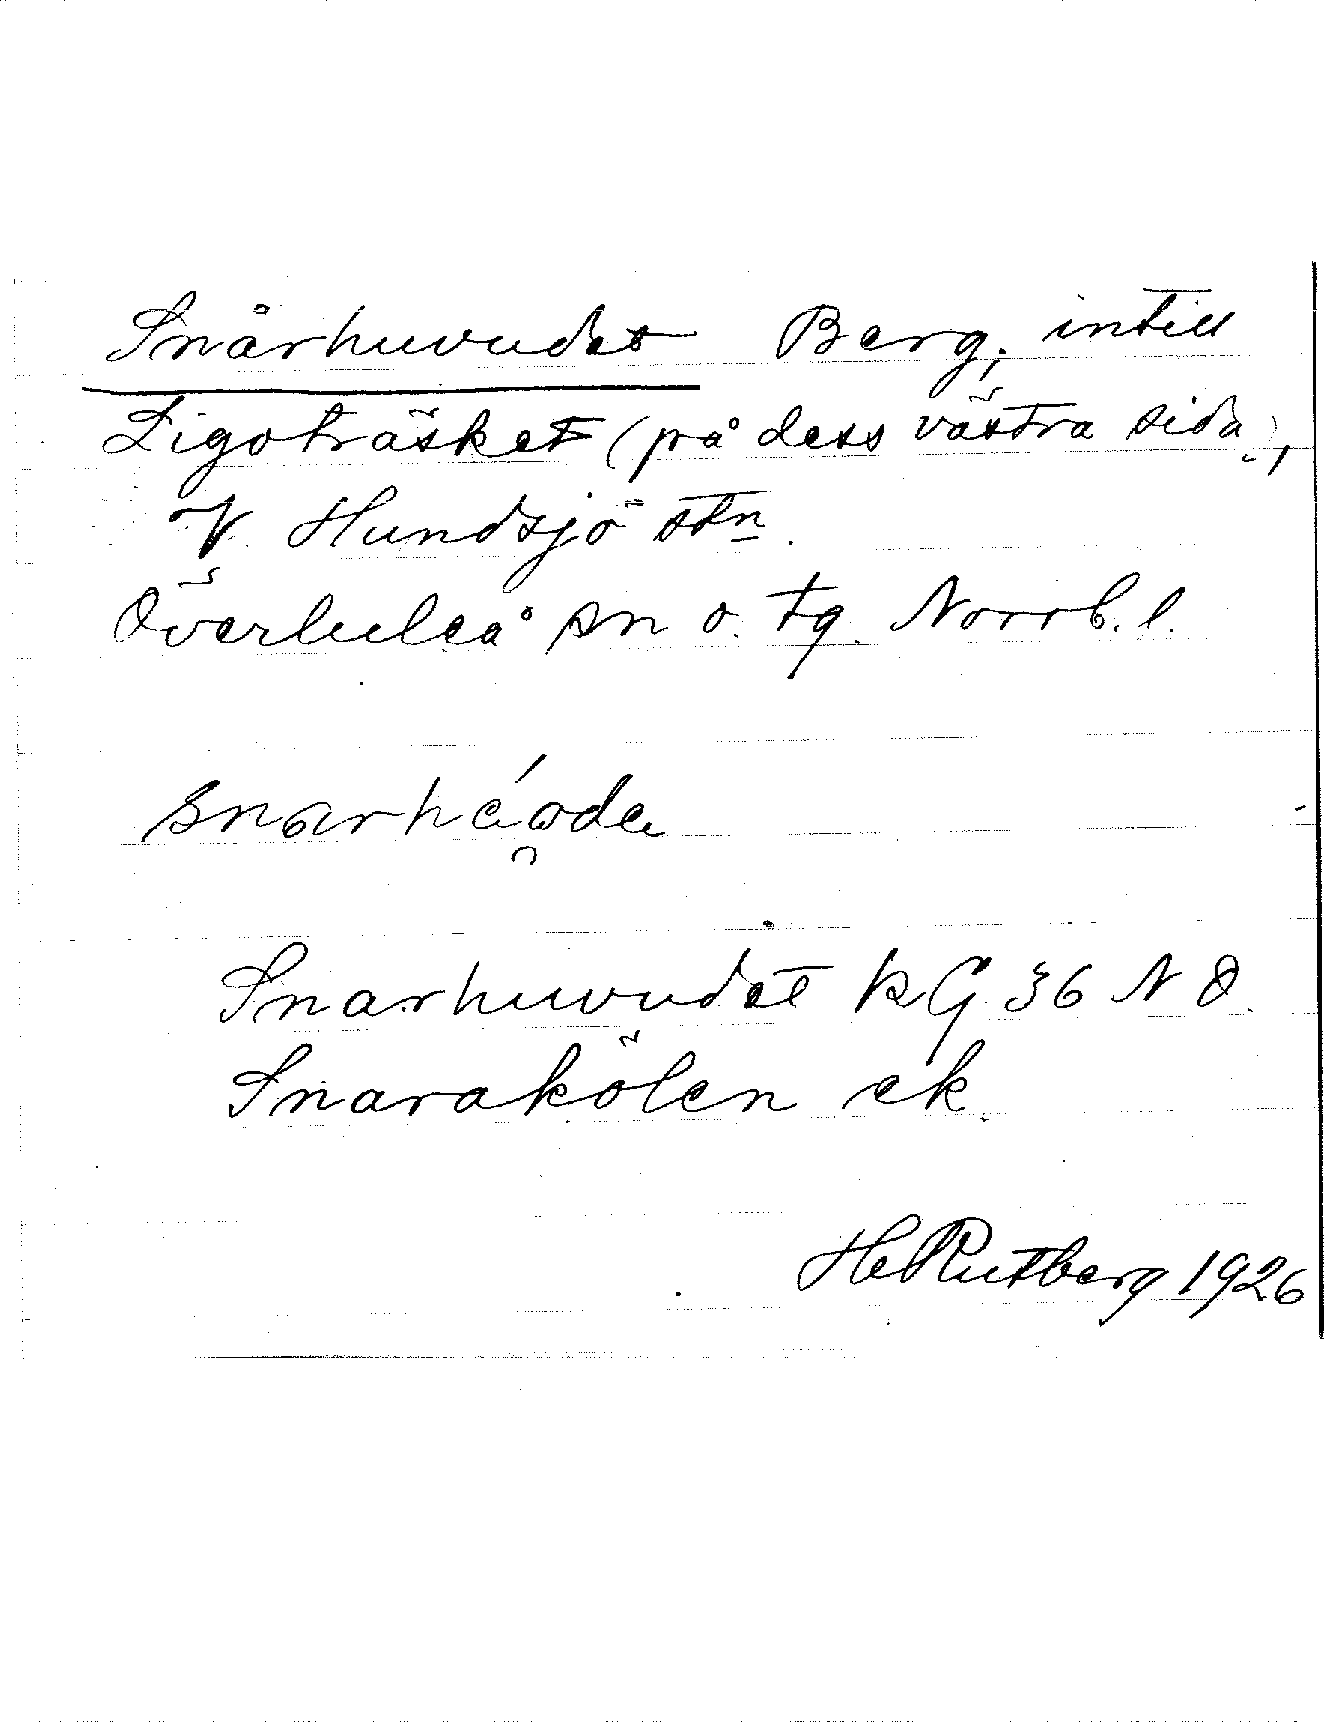 Snårhuvudet Berg, intill
Ligoträsket (på dess västra sida),
V. Hundsjö stn.
Överluleå sn o. tg. Norrb. l.
Snarhuvudet kG 36 N O.
Snarakölen ek.
H Rutberg 1926